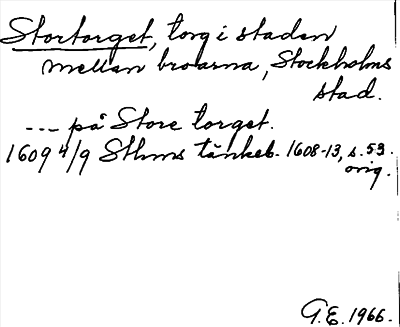 Stortorget, torg i staden
mellan broarna, Stockholms
stad.
--- på Store torget.
1609 4/9 Sthms tänkeb. 1608-13, s. 53.
orig.
G.E. 1966.